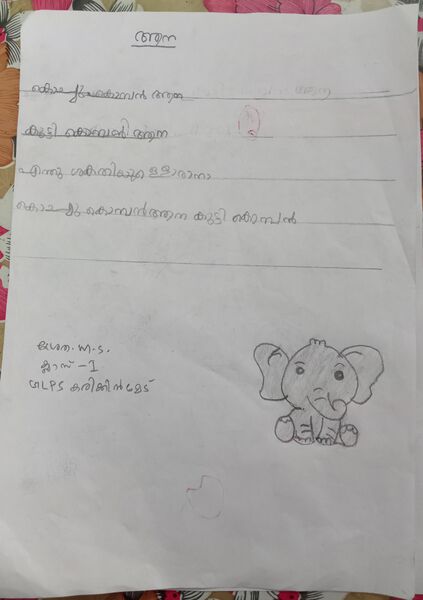 ആന
കൊച്ചു കൊമ്പൻ ആന
കുട്ടി കൊമ്പൻ ആന
എന്തു ശക്തിയുള്ളൊരാനാ
കൊച്ചു കൊമ്പൻ ആന കുട്ടി കൊമ്പൻ
M.S.
ക്ലാസ് - I
GLPS കരിക്കിൻമേട്